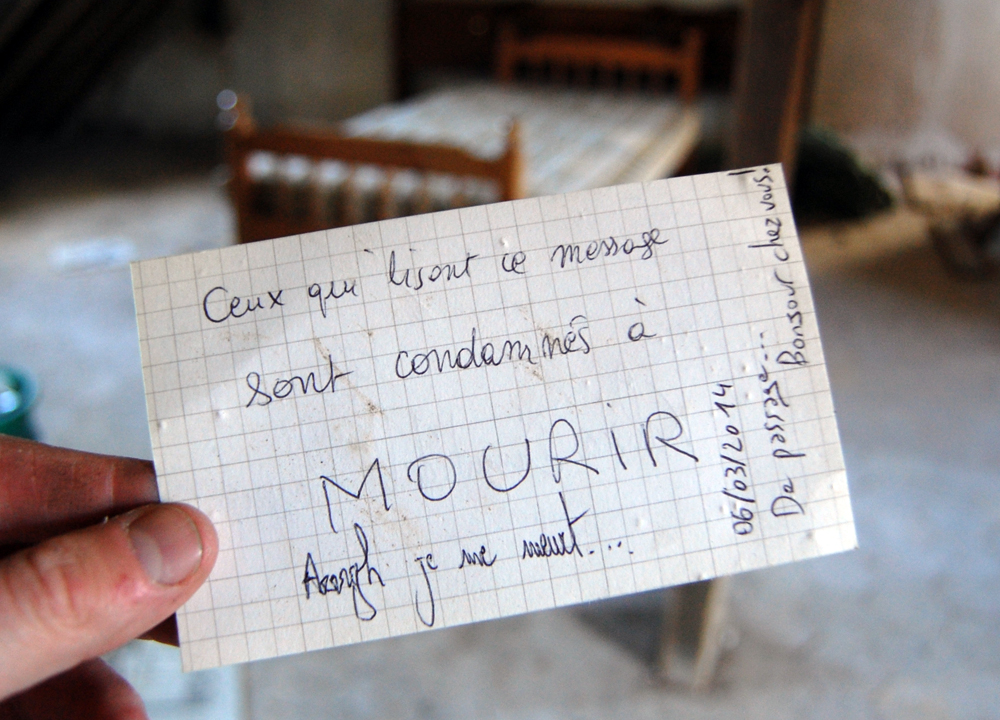 Ceux qui lisent ce message
sont condamnés à
MOURIR
Aaargh je me meurt....
06/03/2014
De passage...
Bonsoir chez vous!